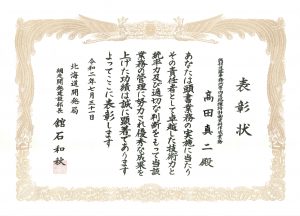 表彰状
高田真二殿
あなたは頭書業務の実施に当たり
その責任者として卓越した技術力と
統率力及び適切な判断をもって当該
業務の管理に努められ優秀な成果を
上げた功績は誠に顕著であります
よってここに表彰します
令和二年七月三十一日
北海道開発局
網走開発建設部長 舘石和秋